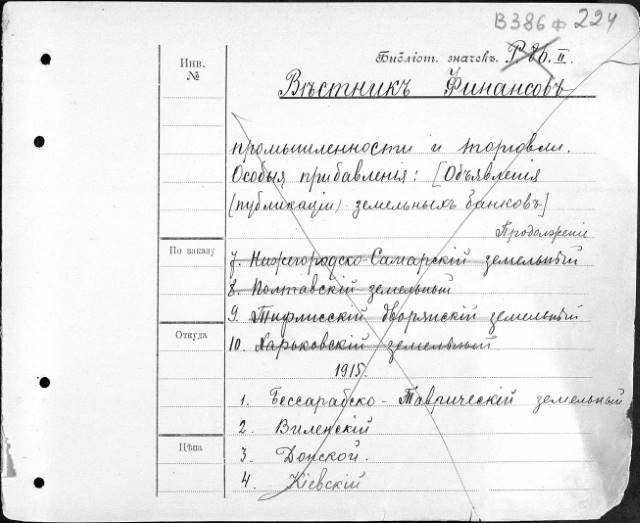 В386ф 224
Инв. №
Библіот. значекъ. Р.86. II.
Вѣстникъ Финансовъ
промышленности и торговли.
Особыя прибавленія: [Объявленія
(публикаціи) земельныхъ банковъ]
Продолженіе
По заказу
7. Нижегородско-Самарскій земельный
8. Полтавскій земельный
9. Тифлисскій дворянскій земельный
Откуда
10. Харьковскій земельный
1915.
1. Бессарабско-Таврическій земельный
2. Виленскій
Цѣна
3. Донской.
4. Кіевскій